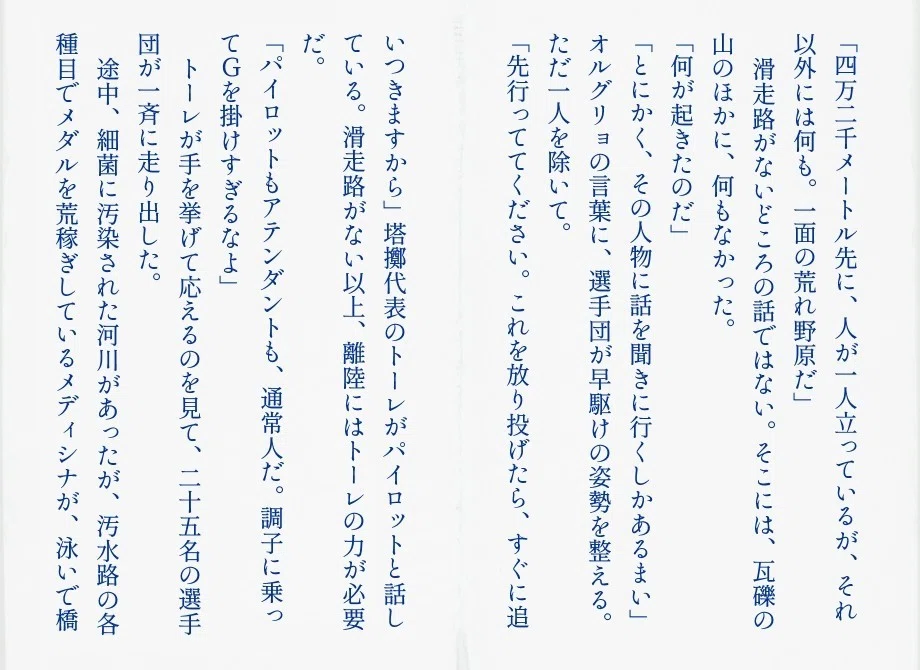 「四万二千メートル先に、人が一人立っているが、それ
以外には何も。一面の荒れ野原だ」
　滑走路がないどころの話ではない。そこには、瓦礫の
山のほかに、何もなかった。
「何が起きたのだ」
「とにかく、その人物に話を聞きに行くしかあるまい」
オルグリョの言葉に、選手団が早駆けの姿勢を整える。
ただ一人を除いて。
「先行っててください。これを放り投げたら、すぐに追
いつきますから」塔擲代表のトーレがパイロットと話し
ている。滑走路がない以上、離陸にはトーレの力が必要
だ。
「パイロットもアテンダントも、通常人だ。調子に乗っ
てGを掛けすぎるなよ」
　トーレが手を挙げて応えるのを見て、二十五名の選手
団が一斉に走り出した。
　途中、細菌に汚染された河川があったが、汚水路の各
種目でメダルを荒稼ぎしているメディシナが、泳いで橋